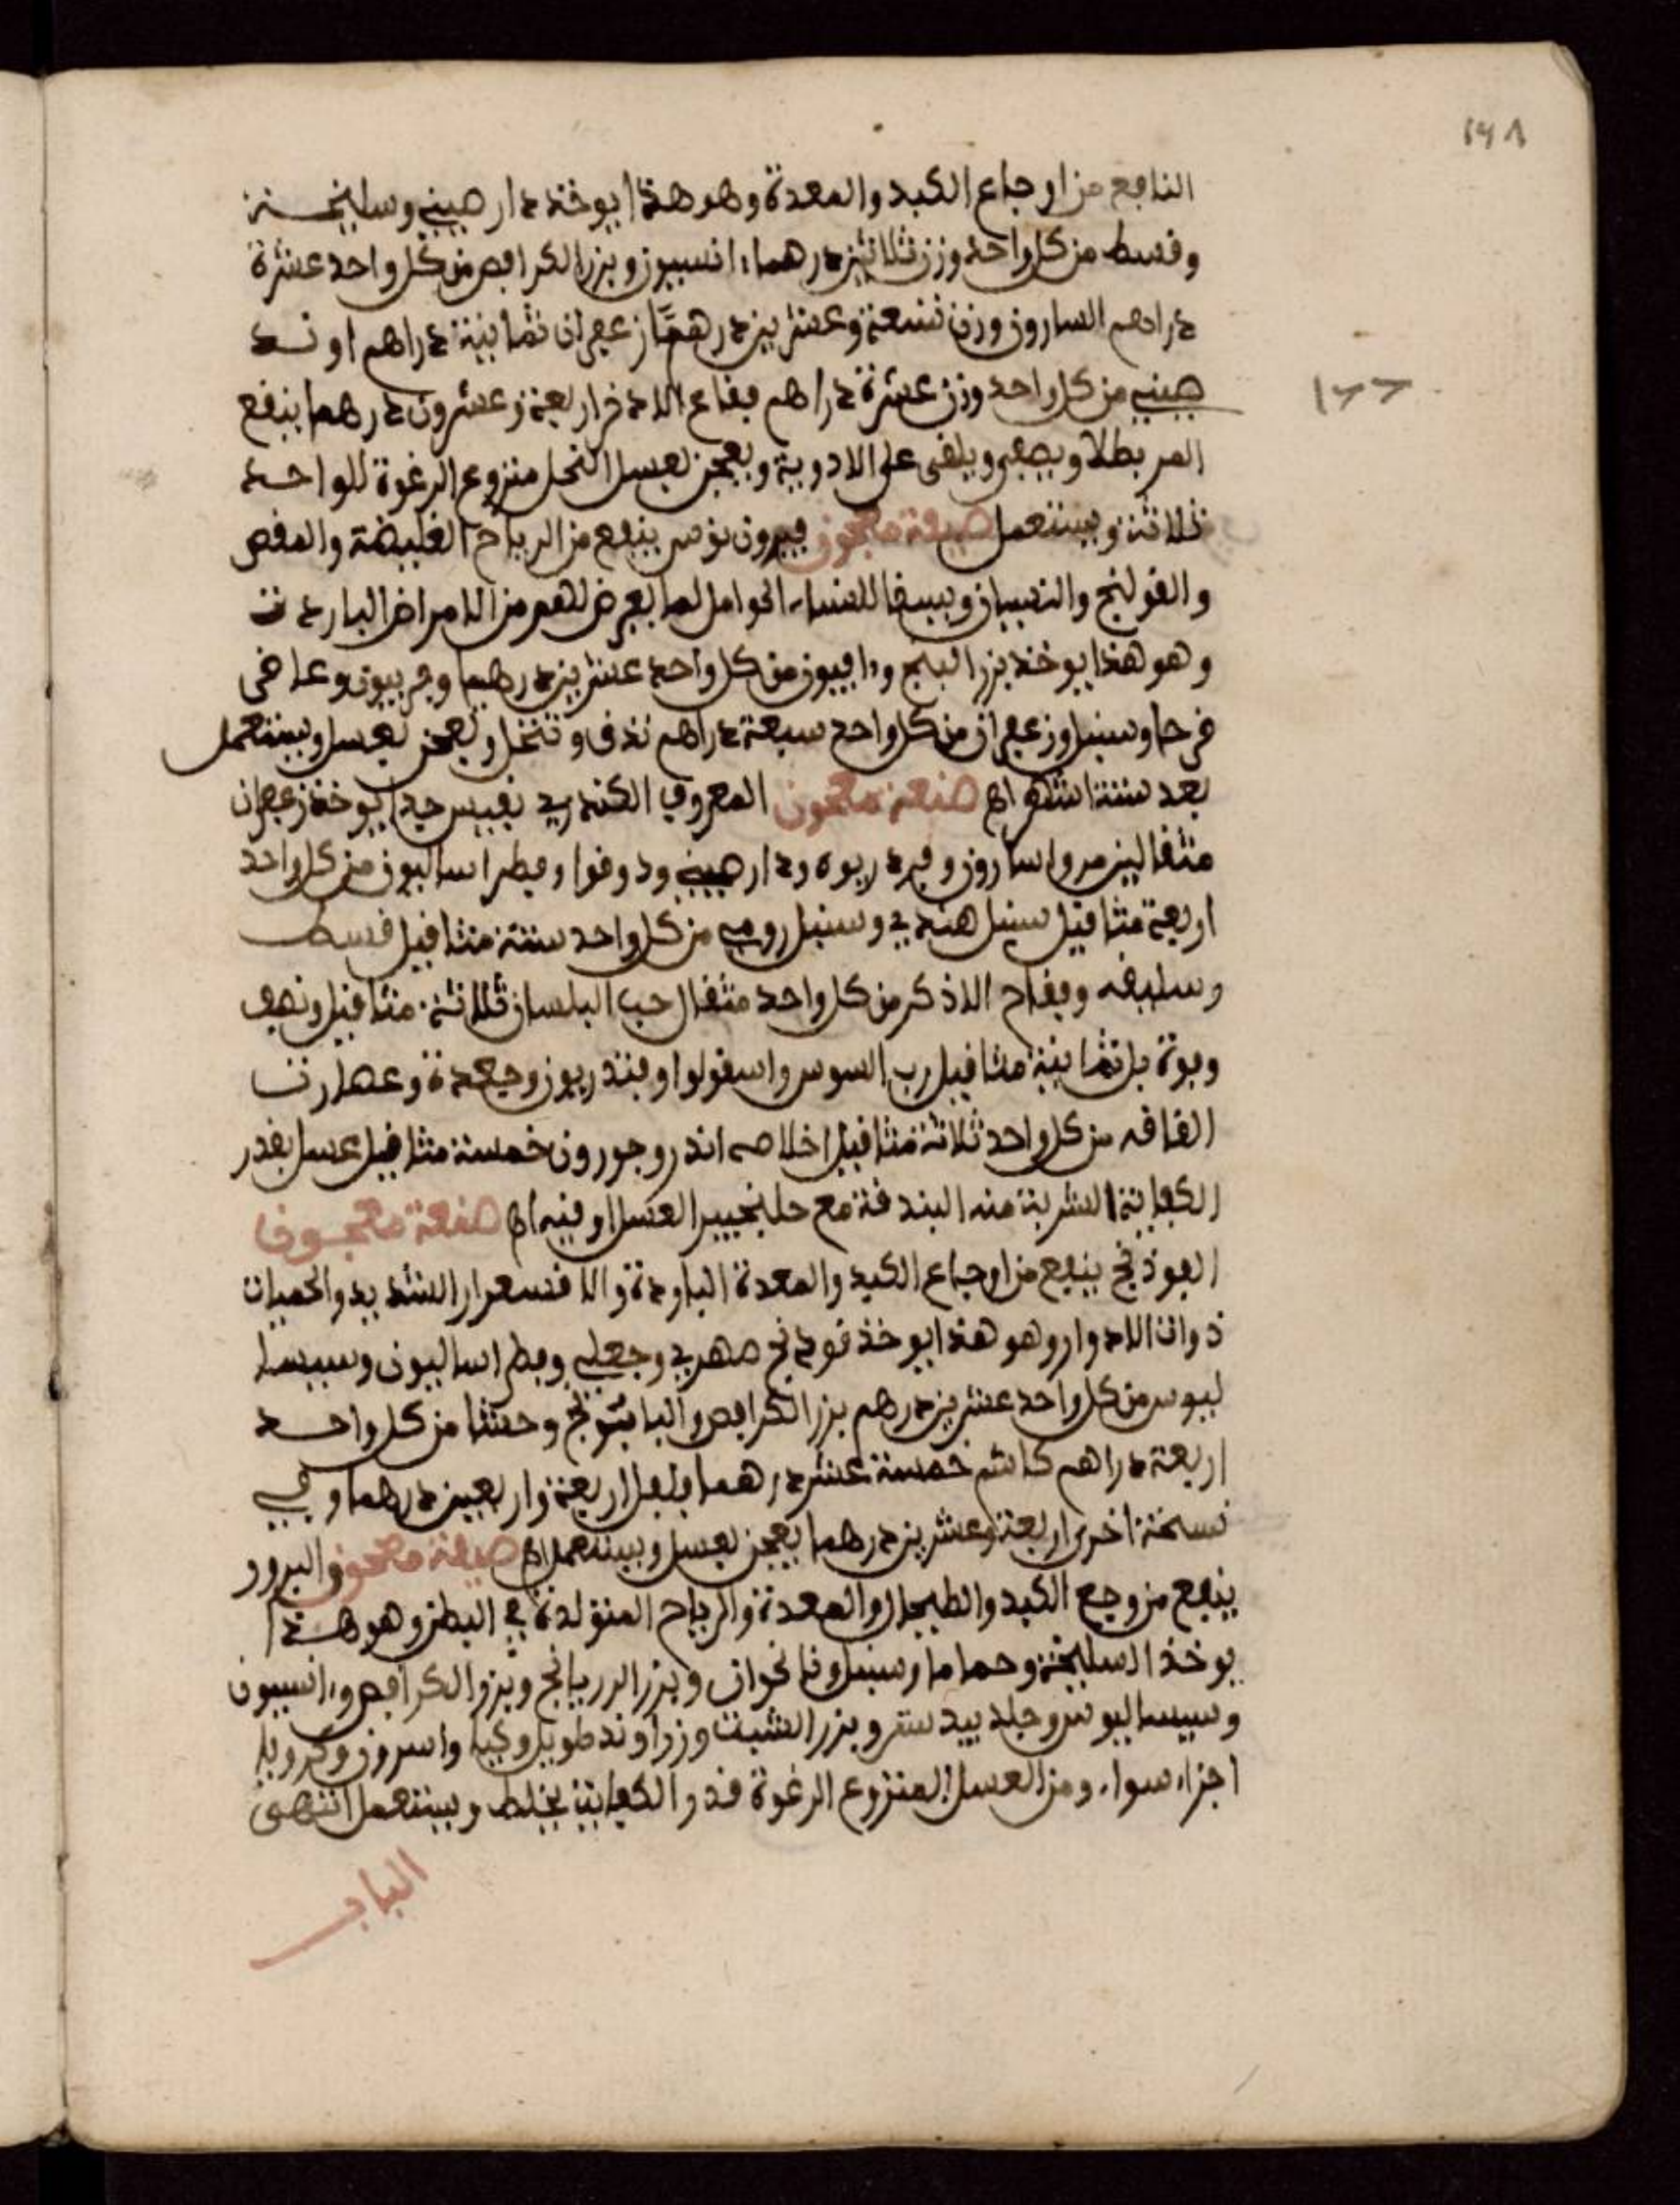 ١٩٨
النافع من اوجاع الكبد والمعدة وهو هذا يوخذ دار صيني وسليخة
وقسط من كل واحد وزن ثلاثين درهما انسيون وبزر الكرافص من كل واحد عشرة
دراهم السارون وزن تسعة وعشرين درهما زعفران ثمانية دراهم او نسد
صيني من كل واحد وزن عشرة دراهم فقاح الادخر اربعة وعشرون درهما ينقع
المر بطلا ويصفى ويلقى على الادوية ويعجن بعسل النحل منزوع الرغوة للواحد
ثلاثة ويستعمل صنعة معجون فيرون نوس ينفع من الرياح الغليضة والمغص
والقولنج والنسيان ويسقا للنساء الحوامل لما يعرض لهم من الامراض الباردة
وهو هذا يوخذ بزر البنج وافيون من كل واحد عشرين درهما وفربيون وعاقر
قرحا وسنبل وزعفران من كل واحد سبعة دراهم تدق وتنخل وتعجن بعسل ويستعمل
بعد ستة اشهر اه صنعة معجون المعروف الكندري نفيس جيد يوخذ زعفران
مثقالين مر واسارون وفو دريوه ودار صيني ودوقوا وفطراساليون من كل واحد
اربعة مثاقيل سنبل هندي وسنبل رومي من كل واحد ستة مثاقيل قسط
وسليفه وفقاح الاذكر من كل واحد مثقال حب البلسان ثلاثة مثاقيل ونصف
وفوة بل ثمانية مثاقيل رب السوس واسقولوا وفندريون وجعدة وعصارت
الغافه من كل واحد ثلاثة مثاقيل اخلاصه اندروجورون خمسة مثاقيل عسل بقدر
الكفاية الشربة منه البندقة مع جلنجبير العسل اوقيه اه صنعة معجون
الفوذنج ينفع من اوجاع الكبد والمعدة الباردة والاقسعرار الشديد والحميات
ذوات الادوار وهو هذا يوخذ فودنج مهري وجعلي وفطراساليون وسيسا
ليوس من كل واحد عشرين درهم بزر الكرافص والبابونج وحشا من كل واحد
اربعة دراهم كاشم خمسة عشر درهما فلفل اربعة واربعين درهما وفي
نسخة اخرى اربعة وعشرين درهما يعجن بعسل ويستعمل اه صنعة معجون البرور
ينفع من وجع الكبد والطيحال والمعدة والرياح المتولدة في البطن وهو هذا
يوخذ السليخة وحماما وسنبل ونانخوات وبزر الرريانج وبزر الكرافص وانسيون
وسيساليوس وجلد بيدستر وبزر الشبت وزراوند طويل وكيا واسرون وكرويا
اجزاء سواء ومن العسل المنزوع الرغوة قدر الكفاية يخلط ويستعمل انتهى
الباب